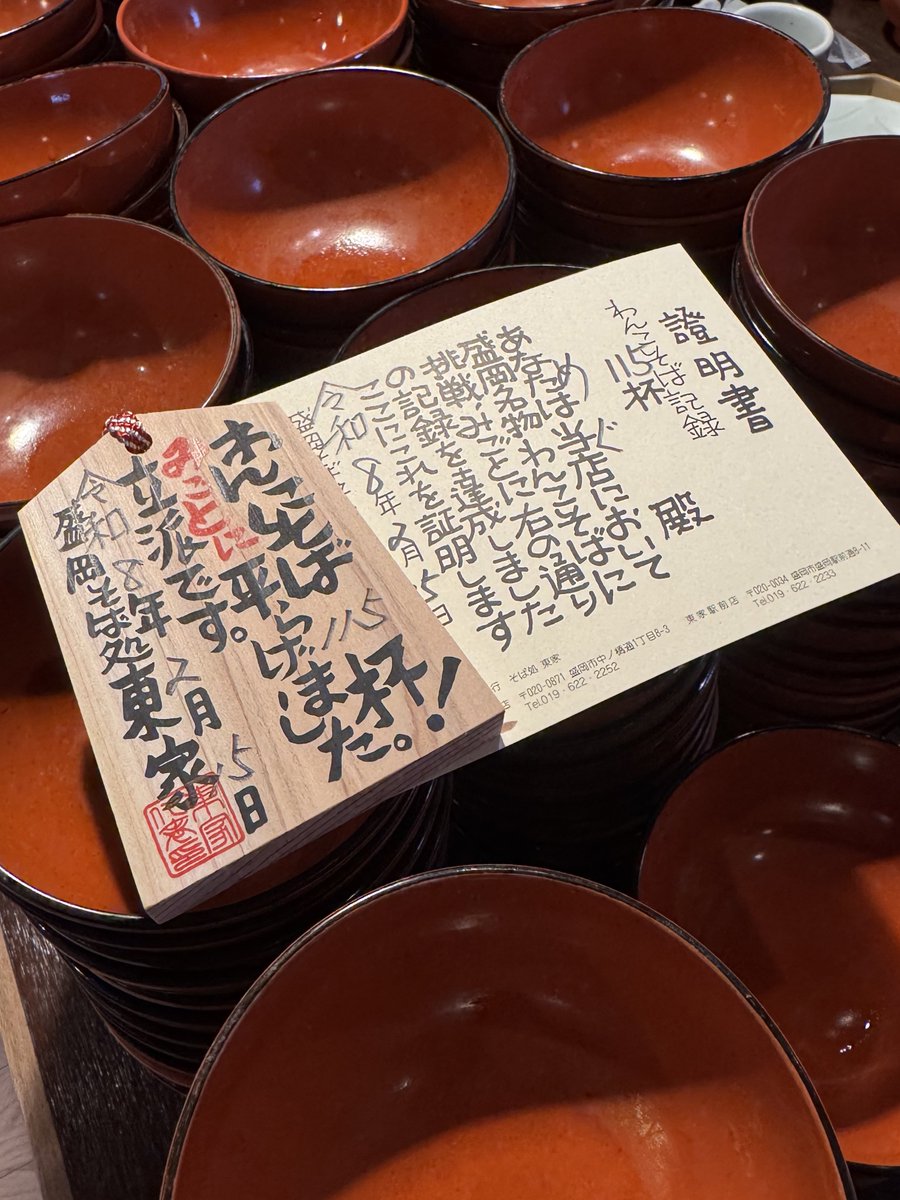 證明書
わんこそば記録
115杯
めぐ 殿
あなたは当店において
盛岡名物わんこそばにて
挑戦しみごとに右の通り
の記録を達成しました
ここにこれを証明します
令和8年2月15日
盛岡そば
行 そば処 東家
店 〒020-0871 盛岡市中ノ橋通1丁目8-3
Tel.019・622・2252
東家駅前店 〒020-0034 盛岡市盛岡駅前通8-11
Tel.019・622・2233
わんこそば115杯!
平らげました。
まことに
立派です。
令和8年2月15日
盛岡そば処東家